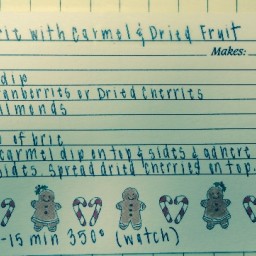 rie with Carmel & Dried Fruit
Makes:
dip
ranberries or Dried Cherries
lmonds
of brie
carmel dip on top & sides & adhere
sides. Spread dried cherries on top.
-15 min 350° (watch)